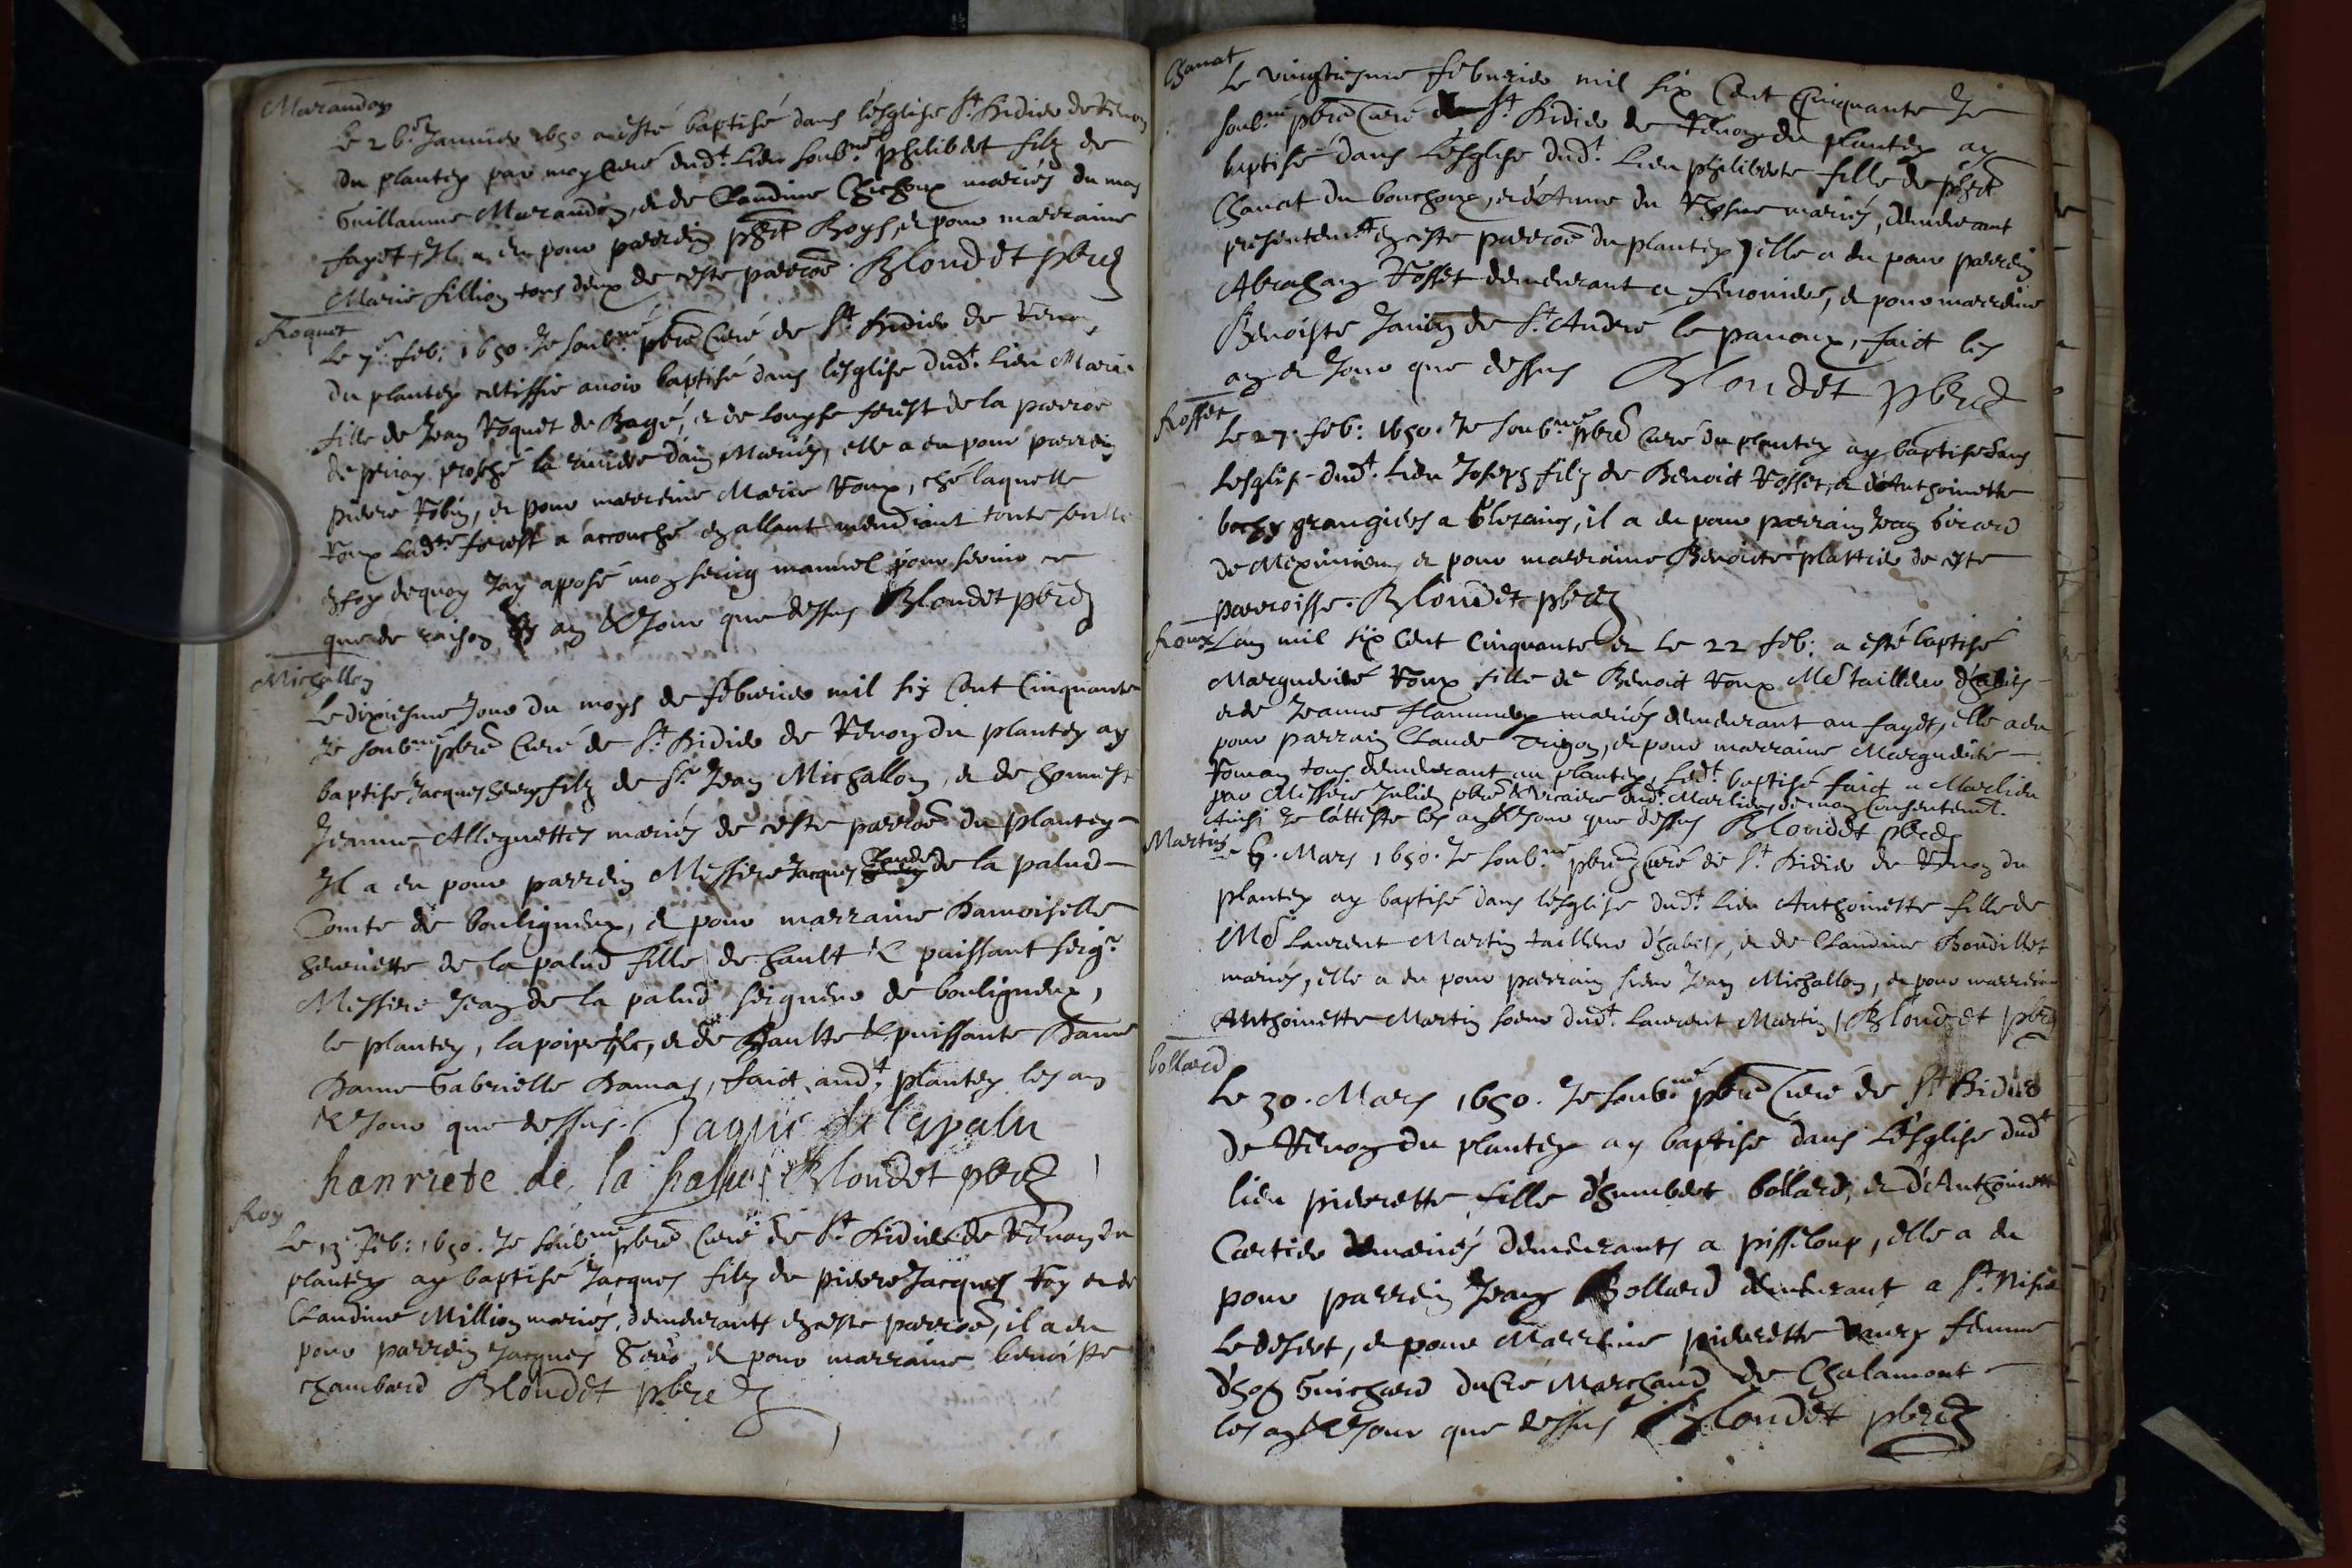 Marandon
Le 26e Januier 1650 a esté baptisé dans l'esglise St Didier de Renon
du plantey par moy Curé dudt Lieu soubné philibert filz de
Guillaume Marandon, et de Claudine Chichoux mariés du mas
fayet, Il a eu pour parrein phert Roys, et pour marraine
Marie fillion tous deux de ceste parroe. Blondet pbre
Roquet
Le 7e feb: 1650. Je soubné pbre Curé de St Didier de Renon
du plantey certiffie auoir baptisé dans l'esglise dudt Lieu Marie
fille de Jean Roquet de Bagé, et de Louyse forest de la parroe
de priay proche la riuiere d'ain Mariés, elle a eu pour parrein
pierre Robin, et pour marreine Marie Roux, ché laquelle
Roux ladte forest a accouché en allant mendiant toute seulle
en foy dequoy J'ay aposé mon seing manuel pour seruir ce
que de raison les an & Jour que dessus Blondet pbre
Michallon
Le dixiesme Jour du moys de feburier mil six Cent Cinquante
Je soubné pbre Curé de St Didier de Renon du plantey ay
baptisé Jacques henry filz de Sr Jean Michallon, et de honneste
Jeanne Alleguettes mariés de ceste parroe du plantey
Il a eu pour parrein Messire Jacques Claude de la palud
Comte de bouligneux, et pour marraine Damoiselle
henriette de la palud fille de hault & puissant seigr
Messire Jean de la palud seigneur de bouligneux,
le plantey, la poipe &c, et de haulte & puissante Dame
Dame Gabrielle Damas, faict audt plantey les an
& Jour que dessus. Jaques de lapalu
hanriete de la palu Blondet pbre
Roy
Le 13e feb: 1650. Je soubné pbre Curé de St Didier de Renon du
plantey ay baptisé Jacques filz de pierre Jacques Roy et de
Claudine Million mariés, demeurants en ceste parroe, il a eu
pour parrein Jacques et pour marraine benoiste
chambard Blondet pbre
Chanat
Le vingtiesme feburier mil six Cent Cinquante Je
soubné pbre Curé de St Didier de Renon du plantey ay
baptisé dans L'esglise dudt Lieu philiberte fille de phert
Chanat du bouchoux, et d'Anne du Rosne mariés, demeurant
presentemt en ceste parroe du plantey, elle a eu pour parrein
Abraham Rosset demeurant a et pour marreine
Benoiste Janin de St André le panoux, faict les
an et Jour que dessus Blondet pbre
Rosset
Le 27. feb: 1650. Je soubné pbre Curé du plantey ay baptisé dans
Lesglise dudt Lieu Joseph filz de Benoict Rosset, et d'Anthoinette
bochy grangiers a il a eu pour parrain Jean Girard
de Meximieu, et pour marraine Benoiste plattier de ceste
parroisse. Blondet pbre
Roux
L'an mil six Cent Cinquante et Le 22 feb: a esté baptisé
Marguerite Roux fille de Benoict Roux Me tailleur d'habits
et de Jeanne mariés demeurant au fayet, elle a eu
pour parrain Claude et pour marraine Marguerite
Roman tous demeurant au plantey, Ledt baptisé faict a Marlieu
par Messire Julien pbre & vicaire dudt Marlieu, de mon Consentemt
Ainsi Je l'atteste les an & Jour que dessus Blondet pbre
Martin
Le 6. Mars 1650. Je soubné pbre Curé de St Didier de Renon du
plantey ay baptisé dans l'esglise dudt Lieu Anthoinette fille de
Me Laurent Martin tailleur d'habits, et de Claudine Bondillet
mariés, elle a eu pour parrain sieur Jean Michallon, et pour marreine
Anthoinette Martin soeur dudt Laurent Martin Blondet pbre
bollard
Le 30. Mars 1650. Je soubné pbre Curé de St Didier
de Renon du plantey ay baptisé dans L'esglise dudt
lieu pierrette fille d'humbert bollard, et d'Anthoinette
Cartier mariés demeurants a pisseloup, elle a eu
pour parrein Jean Bollard demeurant a St Nisie
Le desert, et pour Marreine pierrette femme
d'hon Guichard ducré Marchand de Chalamont
les an & Jour que dessus Blondet pbre